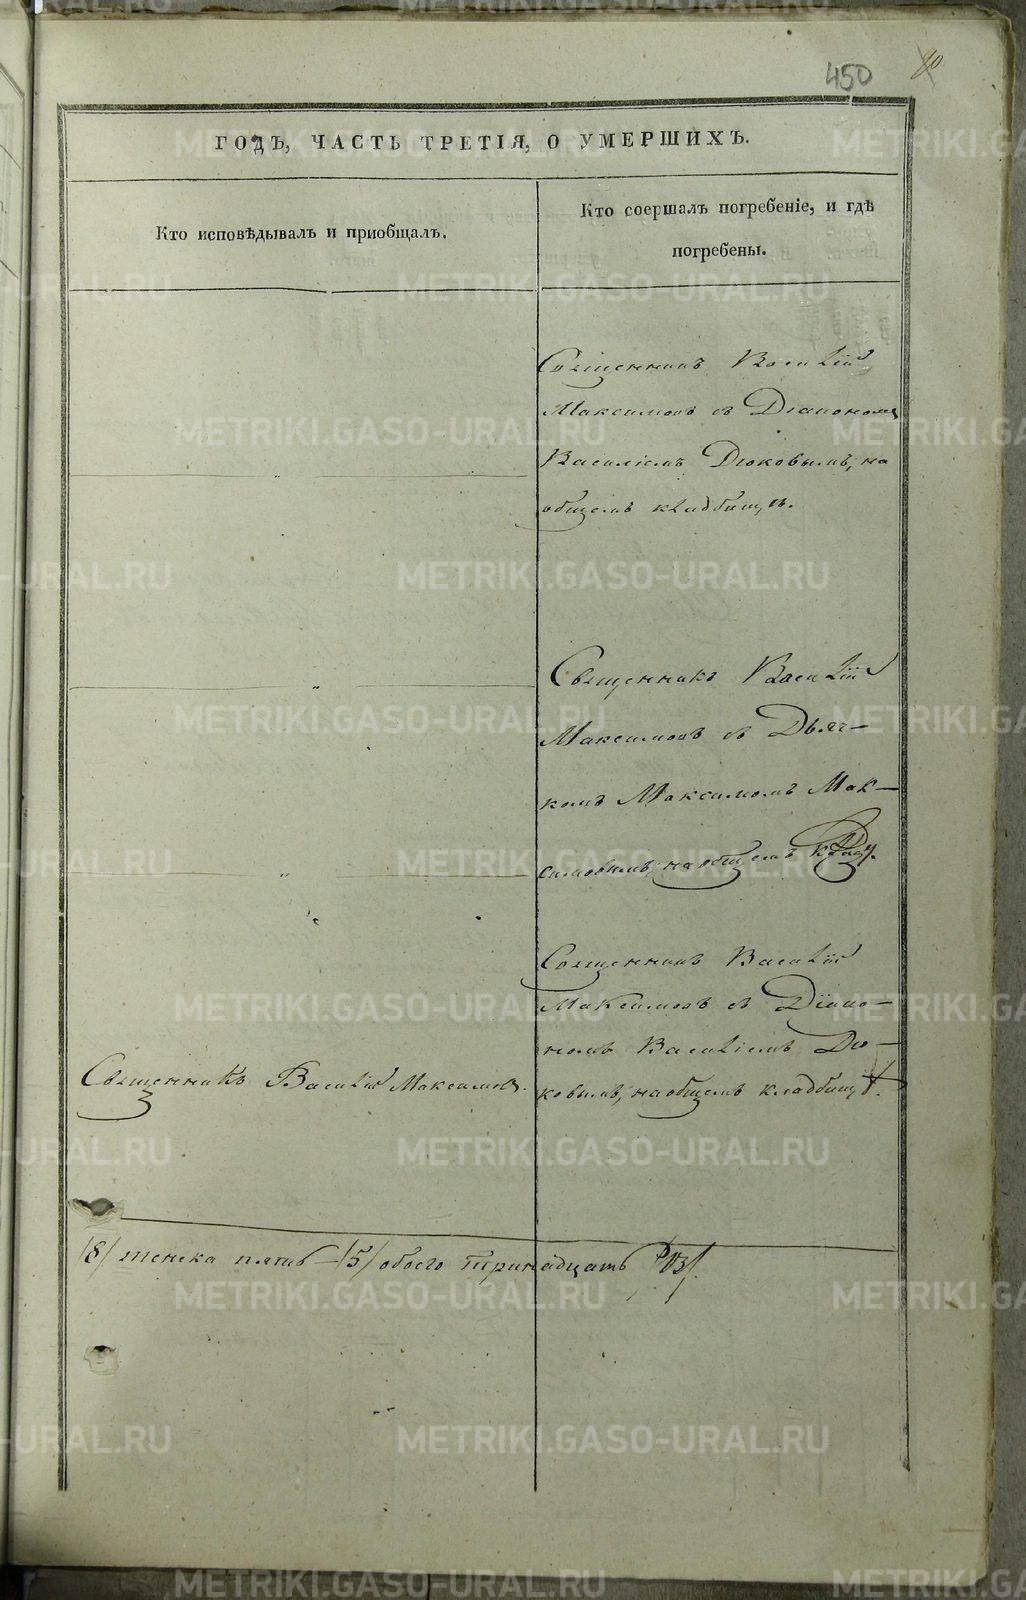 450
ГОДЪ, ЧАСТЬ ТРЕТІЯ, О УМЕРШИХЪ.
Кто исповѣдывалъ и пріобщалъ.
Кто соершалъ погребеніе, и гдѣ
погребены.
Священникъ Василій
Максимовъ съ Діакономъ
Василіемъ Дюковымъ, на
общемъ кладбищѣ.
Священникъ Василій
Максимовъ съ Дьяч-
комъ Максимомъ Мак-
симовымъ, на общемъ кладб.
Священникъ Василій Максимовъ.
Священникъ Василій
Максимовъ съ Діако-
номъ Василіемъ Дю-
ковымъ, на общемъ кладбищѣ.
/8/ женска пять /5/ обоего тринадцать /13/.
METRIKI.GASO-URAL.RU